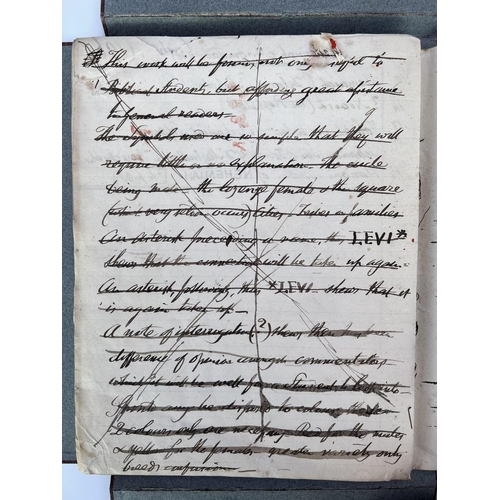 This work will be found, not only useful to
Biblical Students, but affording great assistance
to general readers.
The symbols used are so simple that they will
require little or no explanation. The circle
being male the lozenge female & the square
(which very seldom occurs) Cities, Tribes or families
An asterisk preceding a name, thus LEVI*
shews that the connection will be taken up again.
An asterisk following, thus *LEVI shews that it
is again taken up.
A note of interrogation (?) shews there has been
difference of opinion amongst commentators
which it will be well for a Student to look into
may be disposed to colour
2 colours only are necessary Red for the males
& yellow for the females, greater variety only
breeds confusion